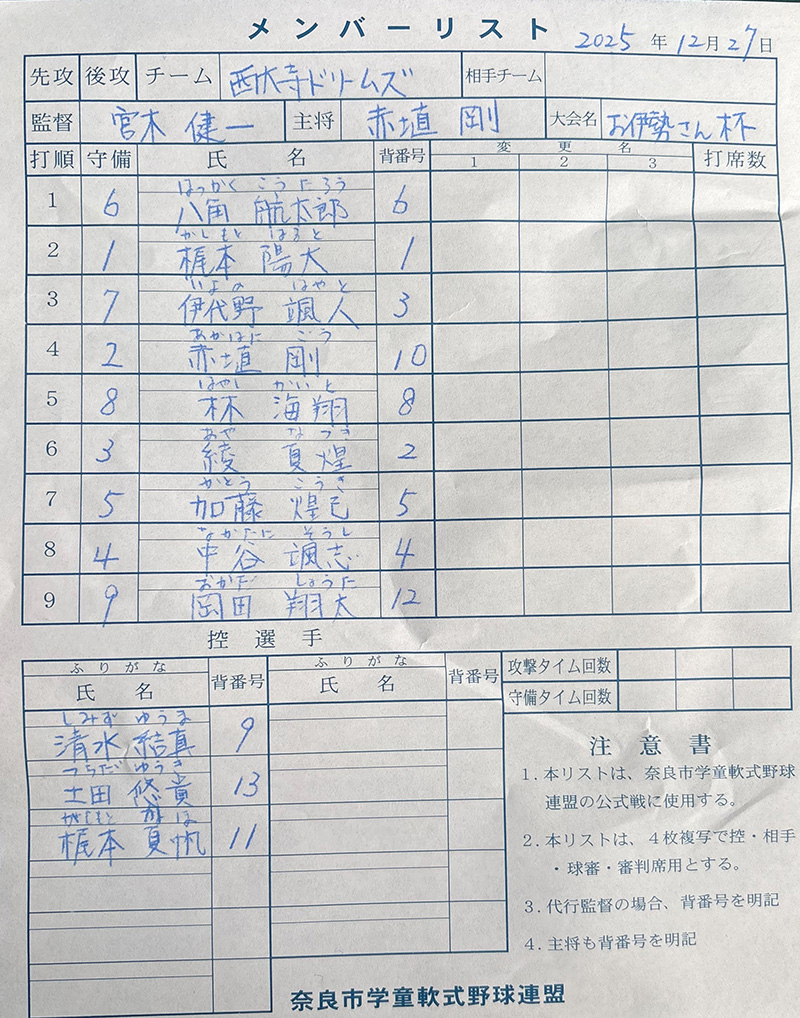 メンバーリスト
2025 年 12月 27日
先攻 後攻 チーム 西大寺ドリームズ 相手チーム
監督 宮木 健一 主将 赤埴 剛 大会名 お伊勢さん杯
打順 守備 氏名 背番号 変更名 打席数
1 2 3
はっかく こうたろう
1 6 八角 航太郎 6
かじもと はると
2 1 梶本 陽大 1
いよの はやと
3 7 伊代野 颯人 3
あかはに ごう
4 2 赤埴 剛 10
はやし かいと
5 8 林 海翔 8
あや なつき
6 3 綾 夏煌 2
かとう こうき
7 5 加藤 煌己 5
なかたに そうし
8 4 中谷 颯志 4
おかだ しょうた
9 9 岡田 翔太 12
控選手
ふりがな ふりがな
氏名 背番号 氏名 背番号
攻撃タイム回数
守備タイム回数
しみず ゆうま
清水 結真 9
つちだ ゆうき
土田 悠貴 13
かじもと かほ
梶本 夏帆 11
注意書
1. 本リストは、奈良市学童軟式野球
連盟の公式戦に使用する。
2. 本リストは、4枚複写で控・相手
・球審・審判席用とする。
3. 代行監督の場合、背番号を明記
4. 主将も背番号を明記
奈良市学童軟式野球連盟